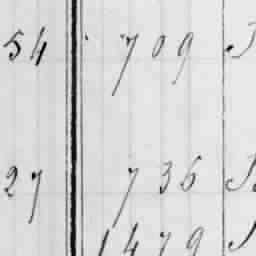 54 709
27 736
1479